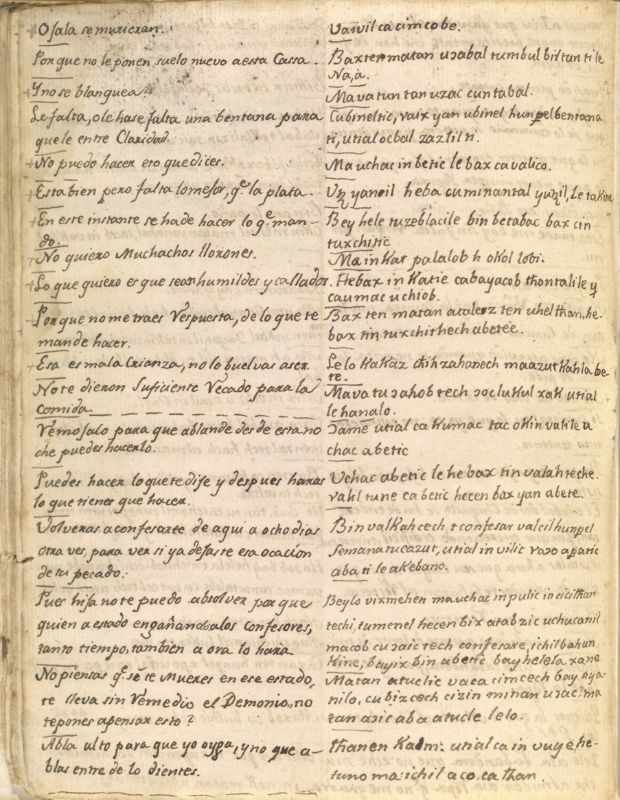 Ojala se murieran.
Por que no le ponen suelo nuevo a essa Cassa.
Y no se blanquea?
Le falta, o le hase falta una bentana para
que le entre Claridad.
No puedo hacer eso que dices.
Esta bien pero falta lo mejor, q.e la plata.
En este instante se ha de hacer lo q.e man-
do.
No quiero Muchachos llorones.
Lo que quiero es que sean humildes y callados.
Por que no me traes Respuesta, de lo que te
mande hacer.
Esa es mala Crianza, no lo buelvas a ser.
No te dieron Suficiente Recado para la
comida
Remojalo para que ablande desde esta no
che puedes hacerlo.
Puedes hacer lo que te dije y despues haras
lo que tienes que hacer.
Volveras a confesarte de aqui a ocho dias
otra ves, para ver si ya dejaste esa ocacion
de tu pecado:
Pues hija no te puedo absolver por que
quien a estado engañando a los Confesores,
tanto tiempo, tambien a ora lo hara
No piensas q.e se te mueres en ese estado,
te lleva sin Remedio el Demonio, no
te pones a pensar esto?
Abla alto para que yo oyga, y no que a-
blas entre de lo dientes.
Va ivil ca cimcobe.
Baxten matan uɔabal tumbul biltun ti le
Na,a.
Mava tun tan uzac cuntabal.
Cubineltic, vaix yan ubinel hunpel bentana
ti, utial ocbal zazil ti.
Ma uchac in betic le bax ca valico.
yanoil heba cu minantal Le takin
Bey hele tuzeblacile bin betabac bax cin
tuxchitic
Ma in Kat palalob h okol lobi.
Hebax in Katie cabayacob thontalile y
caumac uchiob.
Bax ten matan ten uhel than, he-
bax tin tuxchithech abetee.
Le lo Kakaz zahanech maazut Kahla be-
te.
Mava tu ɔahob tech ɔoclukul xak utial
le hanalo.
Ɔame utial ca Kumac tac okin vatile u
chac abetic
Uchac abetic le he bax tin valahteche.
vahl tune ca betic hecen bax yan abete.
Bin valkahcech t confesar valcil hunpel
Semana cazut, utial in vilic vaɔo apatic
aba ti le akebano.
Beylo vixmehen mauchac in pulic in cicithan
techi, tumenel hecen bix atabzic uchucanil
macob cuɔaic tech confesare, ichil bahun
Kine, bayix bin abetic bay helela xane
Matan atuclic va ca cimcech bay aya-
nilo, cu bizcech cizin minan uɔac: ma
tan aɔic aba atucle lelo.
Thanen Kaam: utial ca in vuye, he-
tuno ma: ichil a co. ca than.